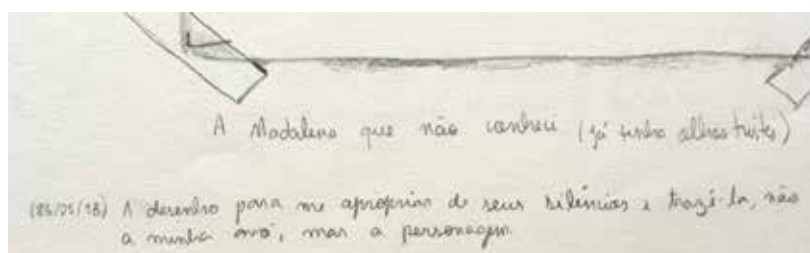 A Madalena que não conheci (já tinha olhos tristes)
(25/05/18) A desenho para me apropriar de seus silêncios e trazê-la, não
a minha avó, mas a personagem.